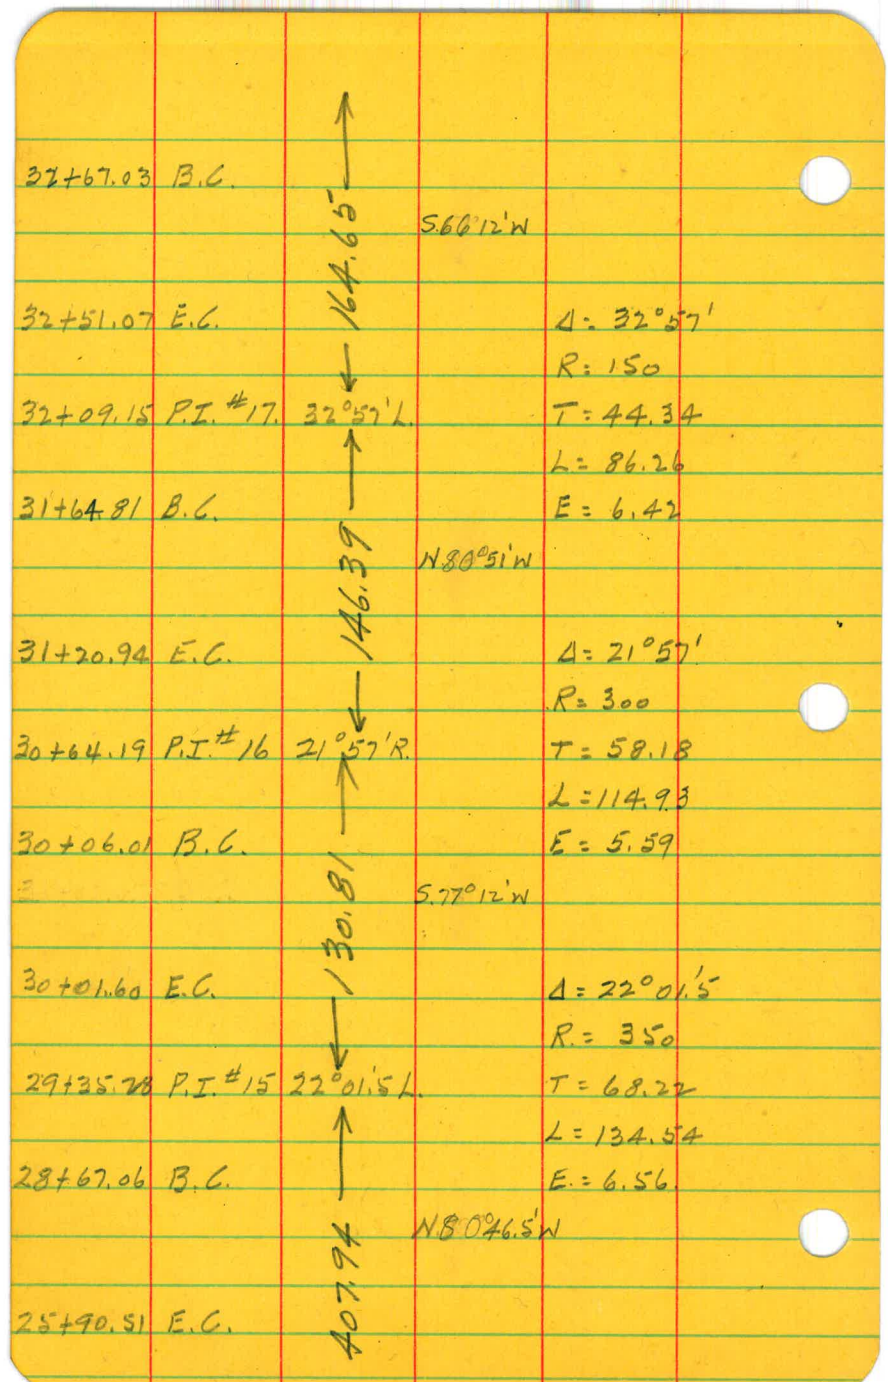 32+67.03 B.C.
164.65
S.66°12'W
32+51.07 E.C. Δ= 32°57'
R= 150
32+09.15 P.I. #17. 32°57'L. T= 44.34
L= 86.26
31+64.81 B.C. E= 6.42
146.39
N80°51'W
31+20.94 E.C. Δ= 21°57'
R= 300
30+64.19 P.I. #16 21°57'R. T= 58.18
L=114.93
30+06.01 B.C. E= 5.59
130.81
S.77°12'W
30+01.60 E.C. Δ= 22°01.'5
R.= 350
29+35.28 P.I. #15 22°01.'5 L. T= 68.22
L= 134.54
28+67.06 B.C. E.= 6.56.
407.94
N.80°46.5'W
25+90.51 E.C.